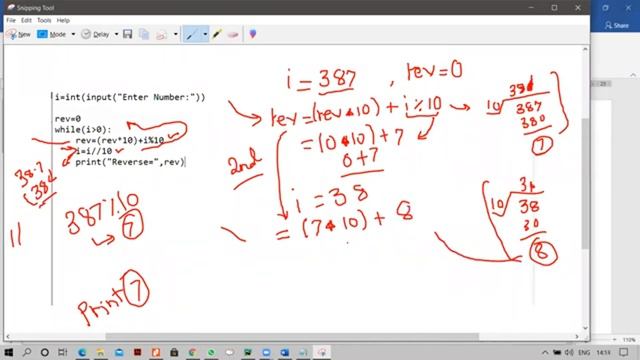 Snipping Tool
File Edit Tools Help
New
i=int(input("Enter Number:"))
rev=0
while(i>0):
rev=(rev*10)+i%10
i=i//10
print("Reverse=",rev)
i = 387 , rev=0
rev=(rev*10)+i%10
=(0*10)+7
0+7
2nd
i = 38
=(7*10)+8
10
387
380
7
10
38
30
8
38.7
38
387%10
7
//
Print 7
ENG
14:14
110%